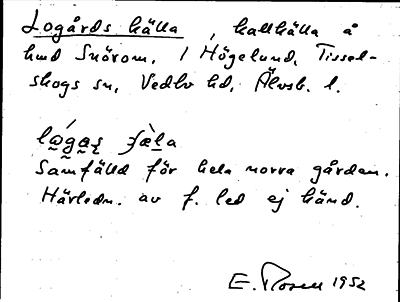 Logårds källa, kallkälla å
hmd Snörom. 1 Högelund, Tissel-
skogs sn, Vedbo hd, Älvsb. l.
Samfälld för hela norra gården.
Härledn. av f. led ej känd.
E. Rosell 1952